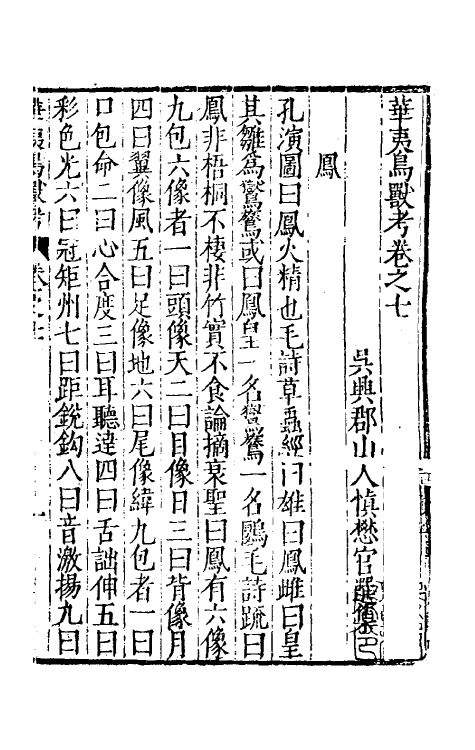 華夷鳥獸考卷之七
吳興郡山人慎懋官
鳳
孔演圖曰鳳火精也毛詩草蟲經曰雄曰鳳雌曰皇
其雛為鸑鷟或曰鳳皇一名鸑鷟一名鶠毛詩疏曰
鳳非梧桐不棲非竹實不食論摘衰聖曰鳳有六像
九包六像者一曰頭像天二曰目像日三曰背像月
四曰翼像風五曰足像地六曰尾像緯九包者一曰
口包命二曰心合度三曰耳聽達四曰舌詘伸五曰
彩色光六曰冠矩州七曰距銳鉤八曰音激揚九曰
華夷鳥獸考 卷之七 一